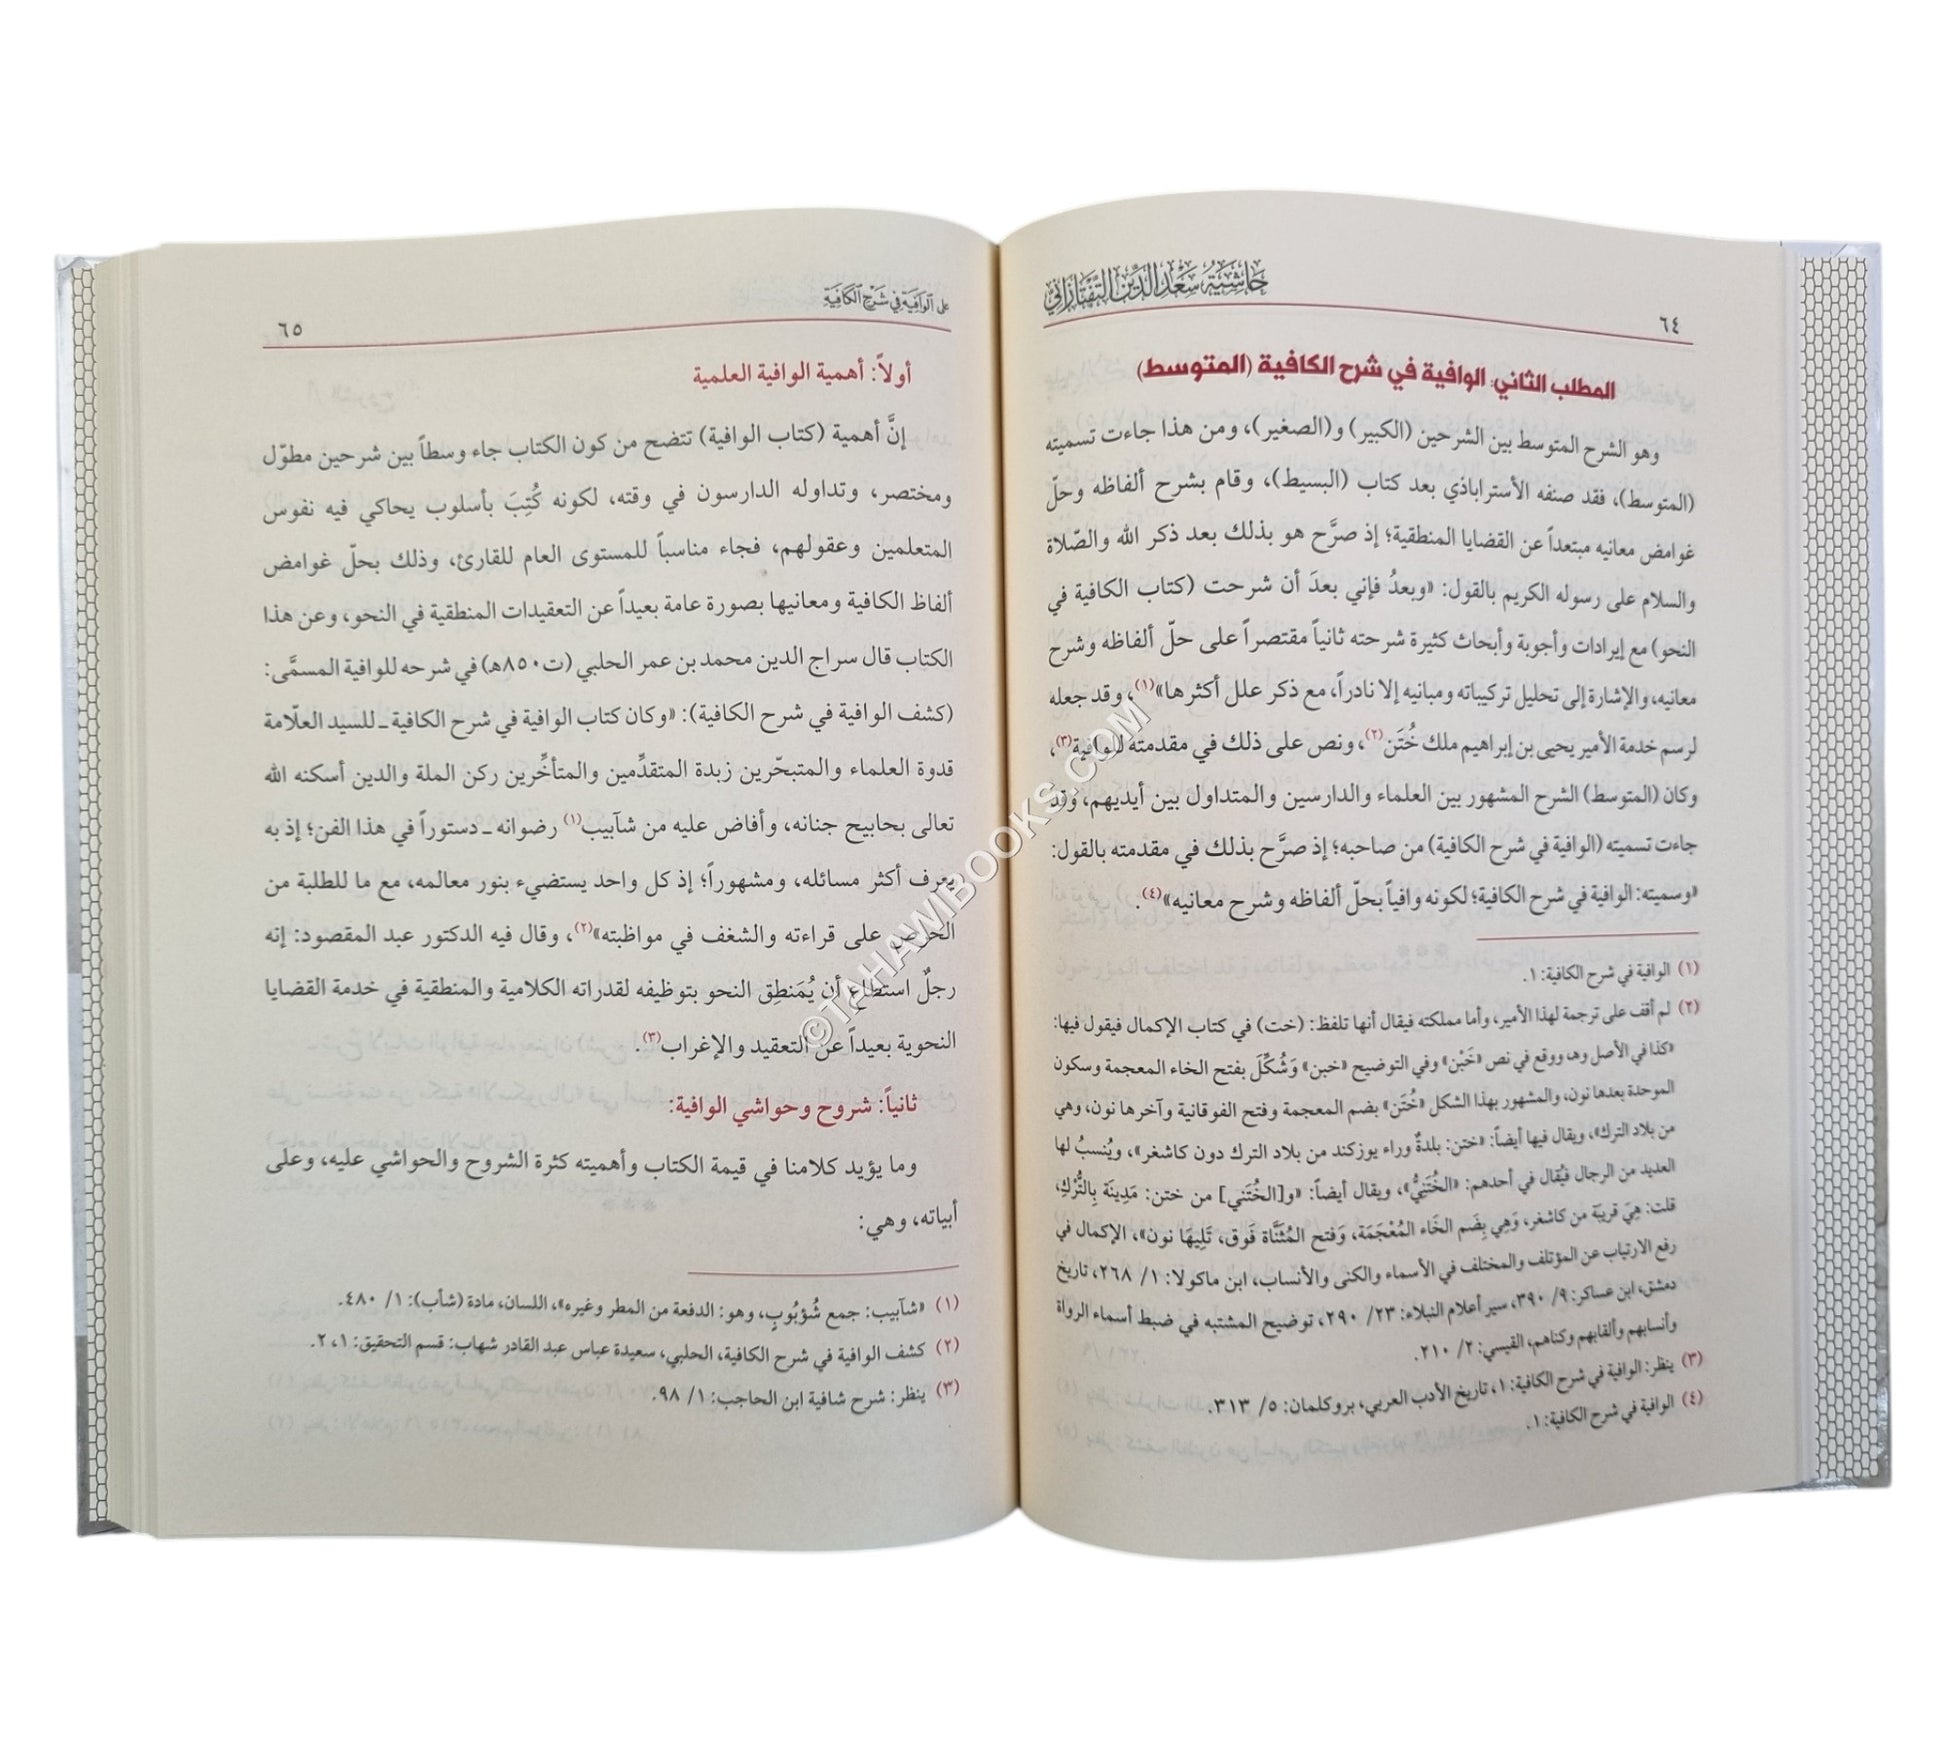 حَاشِيَةُ سَعْدِ الدِّيْنِ التَّفْتَازَانِيِّ
٦٤
المطلب الثاني: الوافية في شرح الكافية (المتوسط)
وهو الشرح المتوسط بين الشرحين (الكبير) و(الصغير)، ومن هذا جاءت تسميته
(المتوسط)، فقد صنفه الأستراباذي بعد كتاب (البسيط)، وقام بشرح ألفاظه وحلّ
غوامض معانيه مبتعداً عن القضايا المنطقية؛ إذ صرَّح هو بذلك بعد ذكر الله والصّلاة
والسلام على رسوله الكريم بالقول: «وبعدُ فإني بعدَ أن شرحت (كتاب الكافية في
النحو) مع إيرادات وأجوبة وأبحاث كثيرة شرحته ثانياً مقتصراً على حلّ ألفاظه وشرح
معانيه، والإشارة إلى تحليل تركيباته ومبانيه إلا نادراً، مع ذكر علل أكثرها»(١)، وقد جعله
لرسم خدمة الأمير يحيى بن إبراهيم ملك خُتَن(٢)، ونص على ذلك في مقدمته للوافية(٣)،
وكان (المتوسط) الشرح المشهور بين العلماء والدارسين والمتداول بين أيديهم، وقد
جاءت تسميته (الوافية في شرح الكافية) من صاحبه؛ إذ صرَّح بذلك في مقدمته بالقول:
«وسميته: الوافية في شرح الكافية؛ لكونه وافياً بحلّ ألفاظه وشرح معانيه»(٤).
(١) الوافية في شرح الكافية: ١.
(٢) لم أقف على ترجمة لهذا الأمير، وأما مملكته فيقال أنها تلفظ: (خت) في كتاب الإكمال فيقول فيها:
«كذا في الأصل وها ووقع في نص «خَبْن» وفي التوضيح «خبن» وَشُكِّلَ بفتح الخاء المعجمة وسكون
الموحدة بعدها نون، والمشهور بهذا الشكل «خُتَن» بضم المعجمة وفتح الفوقانية وآخرها نون، وهي
من بلاد الترك»، ويقال فيها أيضاً: «ختن: بلدةٌ وراء يوزكند من بلاد الترك دون كاشغر»، ويُنسبُ لها
العديد من الرجال فيُقال في أحدهم: «الخُتَنِيُّ»، ويقال أيضاً: «و[الخُتَني] من ختن: مَدِينَة بِالتُّرْكِ،
قلت: هِيَ قريبَة من كاشغر، وَهِي بِضَم الخَاء المُعْجَمَة، وَفتح المُثَنَّاة فَوق، تَلِيهَا نون»، الإكمال في
رفع الارتياب عن المؤتلف والمختلف في الأسماء والكنى والأنساب، ابن ماكولا: ١/ ٢٦٨، تاريخ
دمشق، ابن عساكر: ٩/ ٣٩٠، سير أعلام النبلاء: ٢٣/ ٢٩٠، توضيح المشتبه في ضبط أسماء الرواة
وأنسابهم وألقابهم وكناهم، القيسي: ٢/ ٢١٠.
(٣) ينظر: الوافية في شرح الكافية: ١، تاريخ الأدب العربي، بروكلمان: ٥/ ٣١٣.
(٤) الوافية في شرح الكافية: ١.
على الوَافِيَة في شَرْحِ الكَافِيَة
٦٥
أولاً: أهمية الوافية العلمية
إنَّ أهمية (كتاب الوافية) تتضح من كون الكتاب جاء وسطاً بين شرحين مطوّل
ومختصر، وتداوله الدارسون في وقته، لكونه كُتِبَ بأسلوب يحاكي فيه نفوس
المتعلمين وعقولهم، فجاء مناسباً للمستوى العام للقارئ، وذلك بحلّ غوامض
ألفاظ الكافية ومعانيها بصورة عامة بعيداً عن التعقيدات المنطقية في النحو، وعن هذا
الكتاب قال سراج الدين محمد بن عمر الحلبي (ت٨٥٠هـ) في شرحه للوافية المسمَّى:
(كشف الوافية في شرح الكافية): «وكان كتاب الوافية في شرح الكافية ـ للسيد العلّامة
قدوة العلماء والمتبحّرين زبدة المتقدِّمين والمتأخِّرين ركن الملة والدين أسكنه الله
تعالى بحابيح جنانه، وأفاض عليه من شآبيب(١) رضوانه ـ دستوراً في هذا الفن؛ إذ به
يعرف أكثر مسائله، ومشهوراً؛ إذ كل واحد يستضيء بنور معالمه، مع ما للطلبة من
الحرص على قراءته والشغف في مواظبته»(٢)، وقال فيه الدكتور عبد المقصود: إنه
رجلٌ استطاع أن يُمَنطِق النحو بتوظيفه لقدراته الكلامية والمنطقية في خدمة القضايا
النحوية بعيداً عن التعقيد والإغراب(٣).
ثانياً: شروح وحواشي الوافية:
وما يؤيد كلامنا في قيمة الكتاب وأهميته كثرة الشروح والحواشي عليه، وعلى
أبياته، وهي:
(١) «شآبيب: جمع شُؤبُوبٍ، وهو: الدفعة من المطر وغيره»، اللسان، مادة (شأب): ١/ ٤٨٠.
(٢) كشف الوافية في شرح الكافية، الحلبي، سعيدة عباس عبد القادر شهاب: قسم التحقيق: ١، ٢.
(٣) ينظر: شرح شافية ابن الحاجب: ١/ ٩٨.
©TAHAWIBOOKS.COM